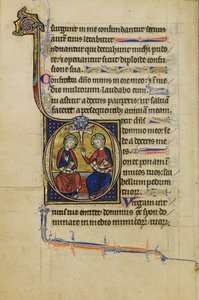 surgunt in me confundantur servus
autem tuus letabitur
nduantur qui detrahunt michi pudo
re et operiantur sicut diploide confu
sione sua
Confitebor dño nimis in ore meo et in me
dio multorum laudabo eum
ui astitit a dextris pauperis ut salva
faceret a persequentibus animam meam
D dominus
domino meo se
de a dextris me
is
onec ponam i
nimicos tuos sca
bellum pedum
tuorum
Virgam uir
tutis tue emittet dominus ex syon do
minare in medio inimicorum tuorum